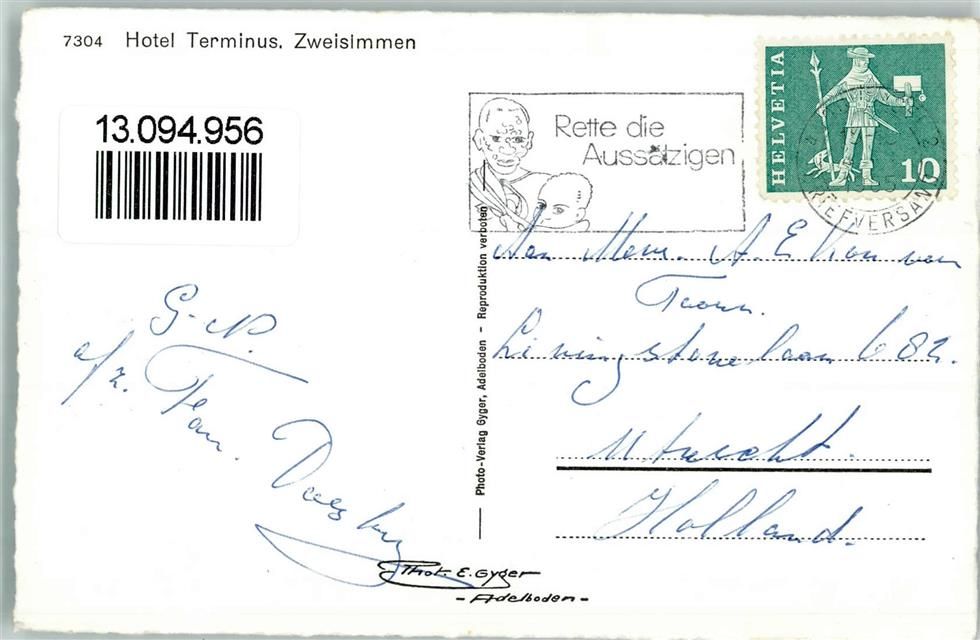 7304 Hotel Terminus, Zweisimmen
13.094.956
Rette die
Aussätzigen
HELVETIA
10
BRIEFVERSAND
Aan Mevr. A. E. van
Livingstonelaan 682.
Utrecht.
Holland.
G. N.
a/z. Fam. Doesburg
Photo-Verlag Gyger, Adelboden - Reproduktion verboten
Phot. E. Gyger
- Adelboden -